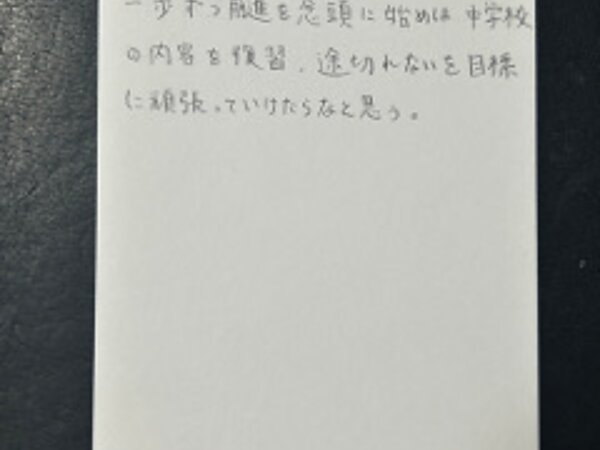 一歩ずつ前進を念頭に始めは中学校
の内容を復習、途切れないを目標
に頑張っていけたらなと思う。